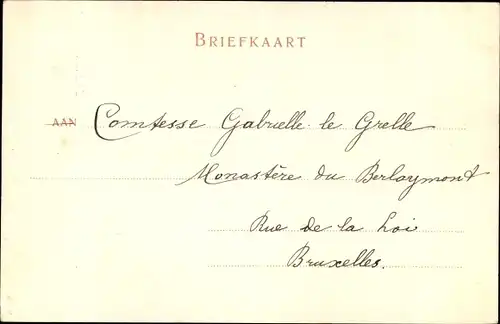 BRIEFKAART
AAN Comtesse Gabrielle le Grelle
Monastère du Berlaymont
Rue de la Loi
Bruxelles.